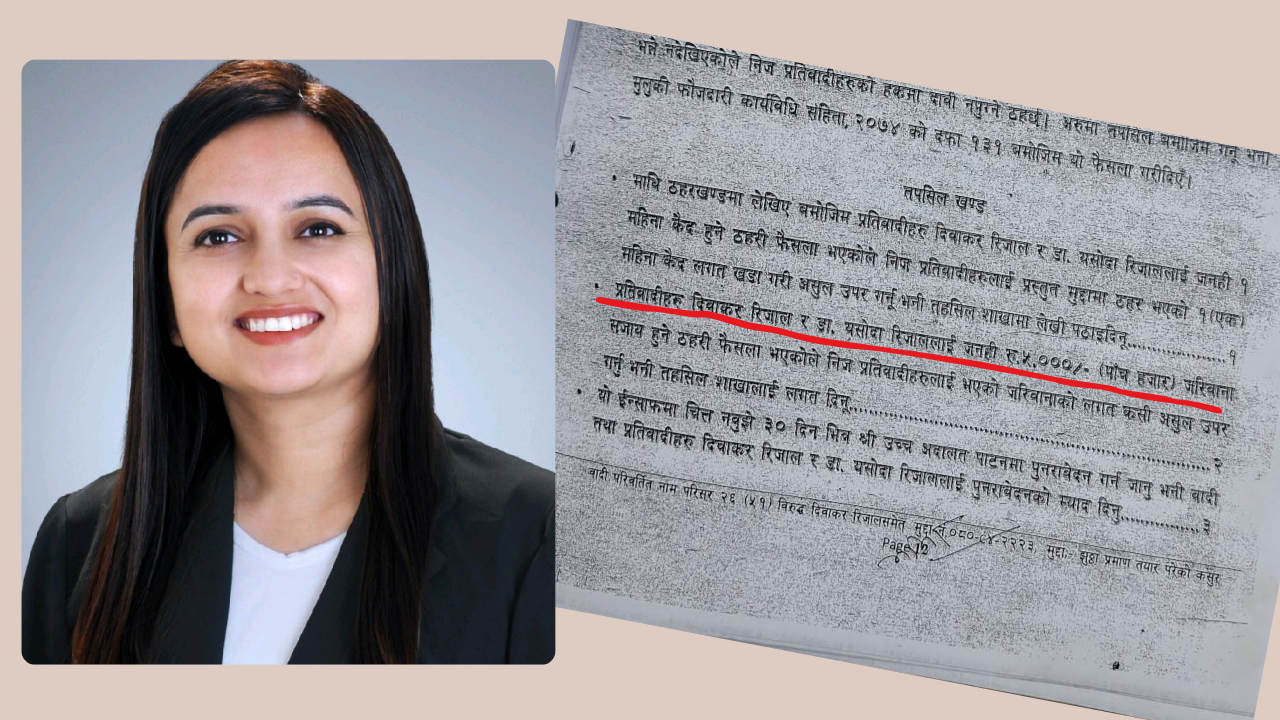 भन्ने नदेखिएकोले निज प्रतिवादीहरुको हकमा दावी नपुग्ने ठहर्छ। अरुमा तपसिल बमोजिम गर्नू भनी
मुलुकी फौजदारी कार्यविधि संहिता, २०७४ को दफा १३१ बमोजिम यो फैसला गरीदिएँ।
तपसिल खण्ड
• माथि ठहरखण्डमा लेखिए बमोजिम प्रतिवादीहरु दिवाकर रिजाल र डा. यसोदा रिजाललाई जनही १
महिना कैद हुने ठहरी फैसला भएकोले निज प्रतिवादीहरुलाई प्रस्तुत मुद्दामा ठहर भएको १(एक)
महिना कैद लगत खडा गरी असुल उपर गर्नू भनी तहसिल शाखामा लेखी पठाइदिनू..................१
• प्रतिवादीहरु दिवाकर रिजाल र डा. यसोदा रिजाललाई जनही रु.५,०००/- (पाँच हजार) जरिवाना
सजाय हुने ठहरी फैसला भएकोले निज प्रतिवादीहरुलाई भएको जरिवानाको लगत कसी असुल उपर
गर्नु भनी तहसिल शाखालाई लगत दिनू.................................................................२
• यो ईन्साफमा चित्त नबुझे ३० दिन भित्र श्री उच्च अदालत पाटनमा पुनरावेदन गर्न जानु भनी वादी
तथा प्रतिवादीहरु दिवाकर रिजाल र डा. यसोदा रिजाललाई पुनरावेदनको म्याद दिनु..............३
वादी परिवर्तित नाम परिसर २६ (५१) विरुद्ध दिवाकर रिजालसमेत मुद्दा नं.०८०-८४-२२२३, मुद्दाः- झुठ्ठा प्रमाण तयार पारेको कसुर
Page 12